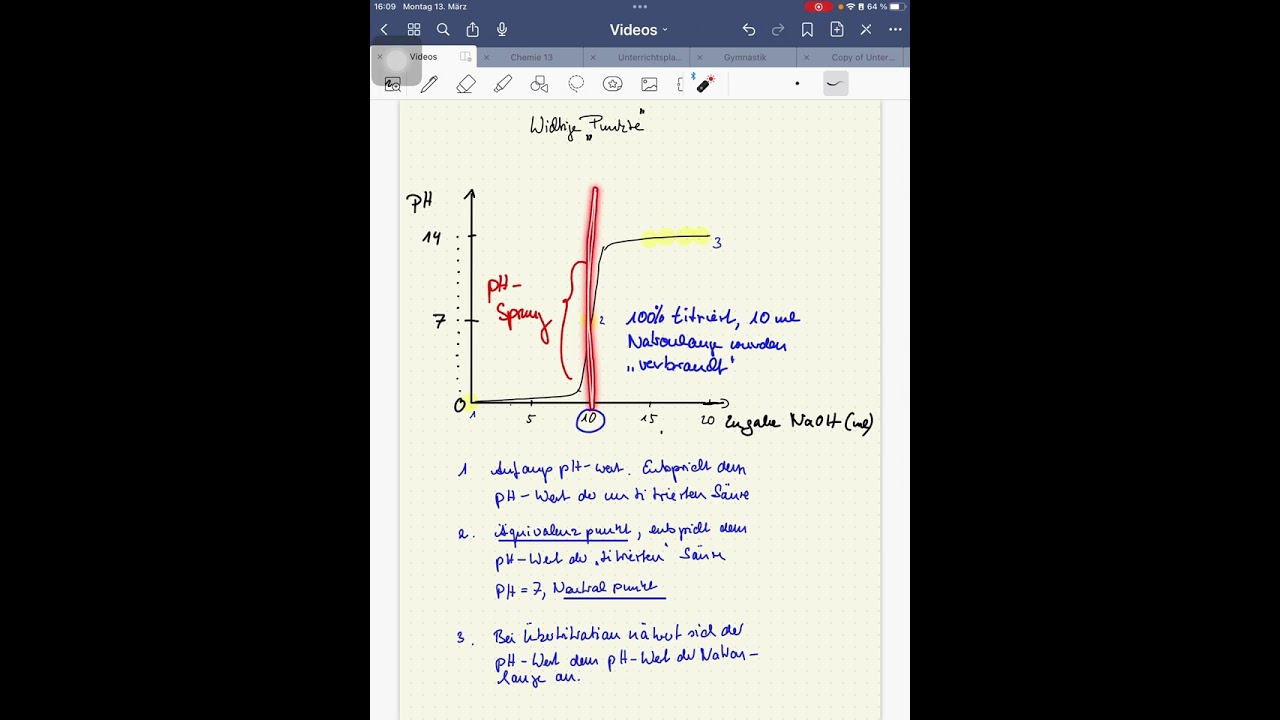 16:09 Montag 13. März
64 %
Videos
Videos
Chemie 13
Unterrichtspla...
Gymnastik
Copy of Unter...
Wichtige „Punkte"
pH
14
3
pH-
Sprung
7
2
100% titriert, 10 ml
Natronlauge wurden
„verbraucht"
0
1
5
10
15
20
Zugabe NaOH (ml)
1 Anfangs pH-Wert. Entspricht dem
pH-Wert der untitrierten Säure
2. Äquivalenzpunkt, entspricht dem
pH-Wert der „titrierten" Säure
pH = 7, Neutralpunkt
3. Bei Übertitration nähert sich der
pH-Wert dem pH-Wert der Natron-
lauge an.